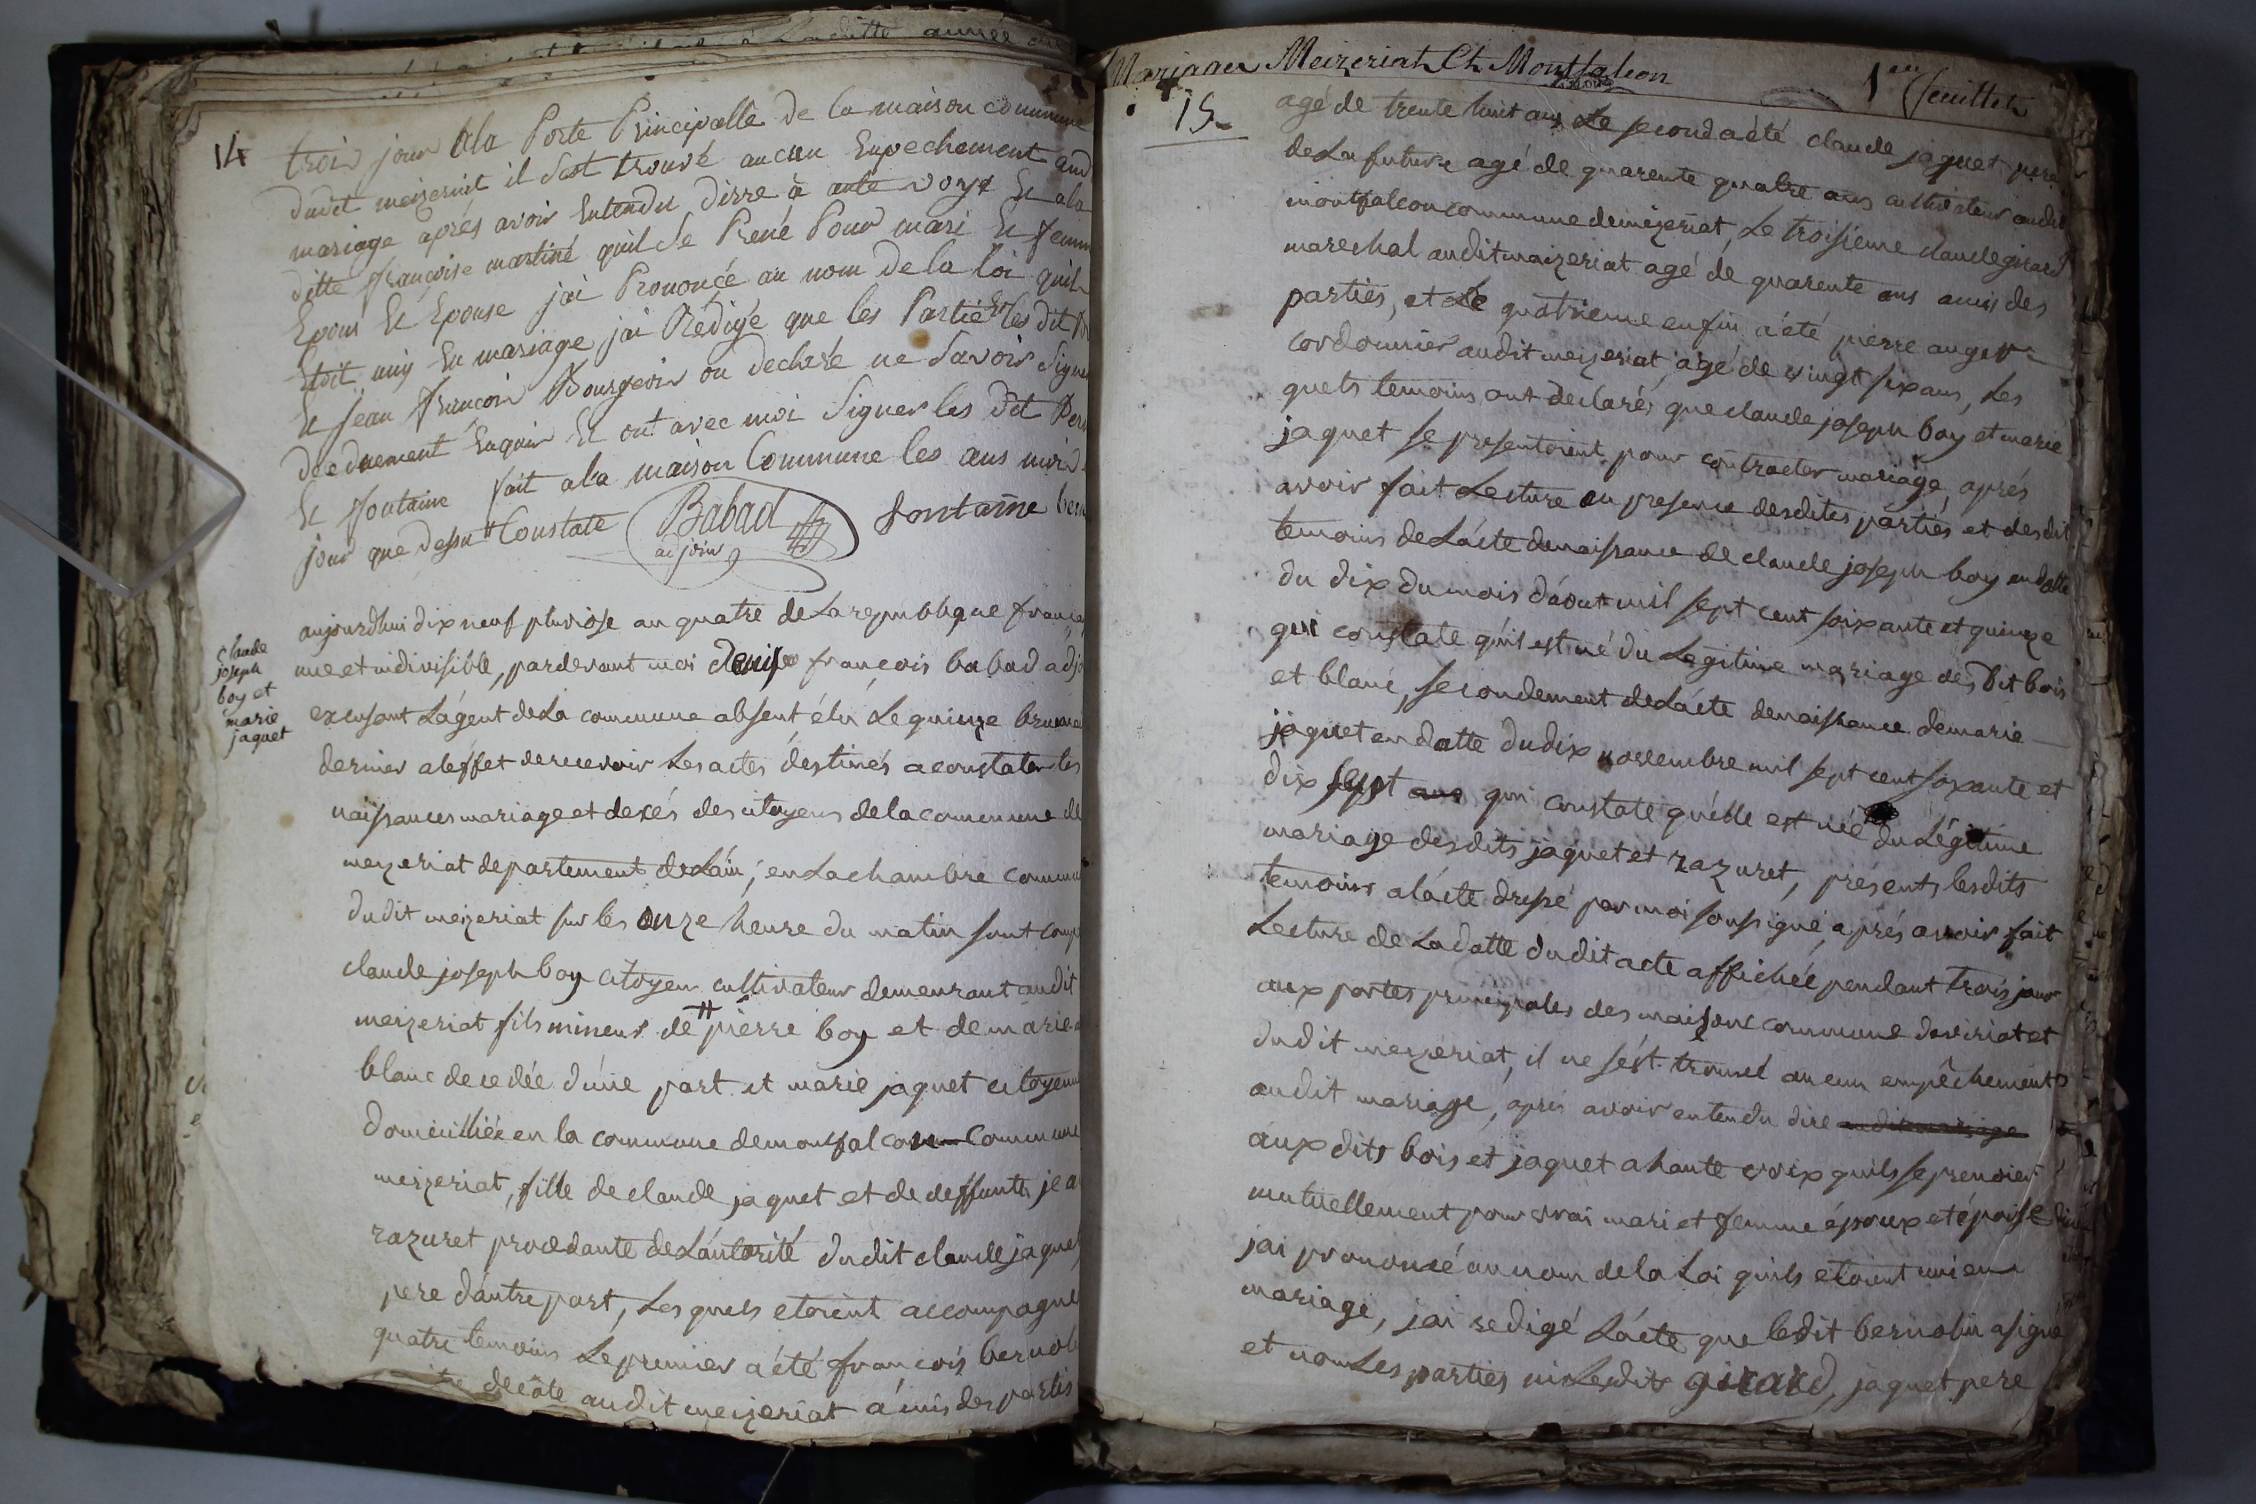 14
troix jour Ala Porte Principalle de la maison commune
dudit meizeriat il sest trouvé aucun Empechement aud
mariage aprés avoir Entendu dirre à aute voye Et ala
ditte françoise martiné quil se Prené Pour mari Et femm
Epoux Et Epouse jai Prononcée au nom de la loi quil
Etoit uniy En mariage jai Rédigé que les Partie Et les dit
Et jean françoix Bourgeoix on declaré ne savoir signe
dee duement Enquix Et ont avec moi signer les dit
Et Fontaine fait ala maison Commune les ans moix
jour que dessu # Constate Babad fontaine
adjoin
claude
joseph
boy et
marie
jaquet
aujourdhui dix neuf pluviose an quatre de La republique frança
une et indivisible, pardevant moi denise françois babad adjo
excusant Lágent de La commune absent élú Le quinze brumai
dernier aleffet de recevoir Les actes destinés a constater les
naissances mariage et decés des citoyens de la commune de
meizeriat departement de Láin, en La chambre commu
dudit meizeriat sur les onze heure du matin sont comp
claude joseph boy citoyen cultivateur demeurant audit
meizeriat fils mineur de # pierre boy et de marie
blanc decedée d'une part et marie jaquet citoyenn
domiciliée en la commune de montfalcon commune
meizeriat, fille de claude jaquet et de deffunte jea
razuret procedante de Láutorité dudit claude jaquet
pere dáutre part, Les quels etoient accompagné
quatre temoins Le premier a été françois bernoli
de côte audit meizeriat ámis des partis
Mariages Meizeriat Ch Montfalcon 1er feuillet
15
agé de trente huit ans Le second a été claude jaquet pere
de La future agé de quarente quatre ans cultivateur audit
montfalcon commune de mézeriat, Le troisieme claude girard
marechal audit maizeriat agé de quarente ans amis des
parties, et Le quatrieme enfin a été pierre auger
cordonnier audit meizeriat agé de vingt six ans, Les
quels temoins ont declarés que claude joseph boy et marie
jaquet se presentoient pour contracter mariage, aprés
avoir fait Lecture en presence desdites parties et desdit
temoins de Lácte de naissance de claude joseph boy en datte
du dix du mois dáout mil sept cent soixante et quinze
qui constate quil est né du Legitime mariage des dit bois
et blanc, secondement de Lácte de naissance de marie
jaquet en datte du dix novembre mil sept cent soixante et
dix sept ans qui constate quélle est née du Légitime
mariage desdits jaquet et razuret, présents lesdits
temoins a lácte dressé par moi soussigné, aprés avoir fait
Lecture de La datte dudit acte affichée pendant trois jour
aux portes principales des maisons commune daviriat et
dudit meizeriat, il ne sést trouvé aucun empêchement
audit mariage, aprés avoir entendu dire audit mariage
aux dits bois et jaquet a haute voix quils se prenoient
mutuellement pour vrai mari et femme époux et épouse
jai prononcé au nom de la Loi quils etoient uni en
mariage, jai redigé Lácte que ledit bernolin a signe
et non Les parties ni Lesdits girard, jaquet pere